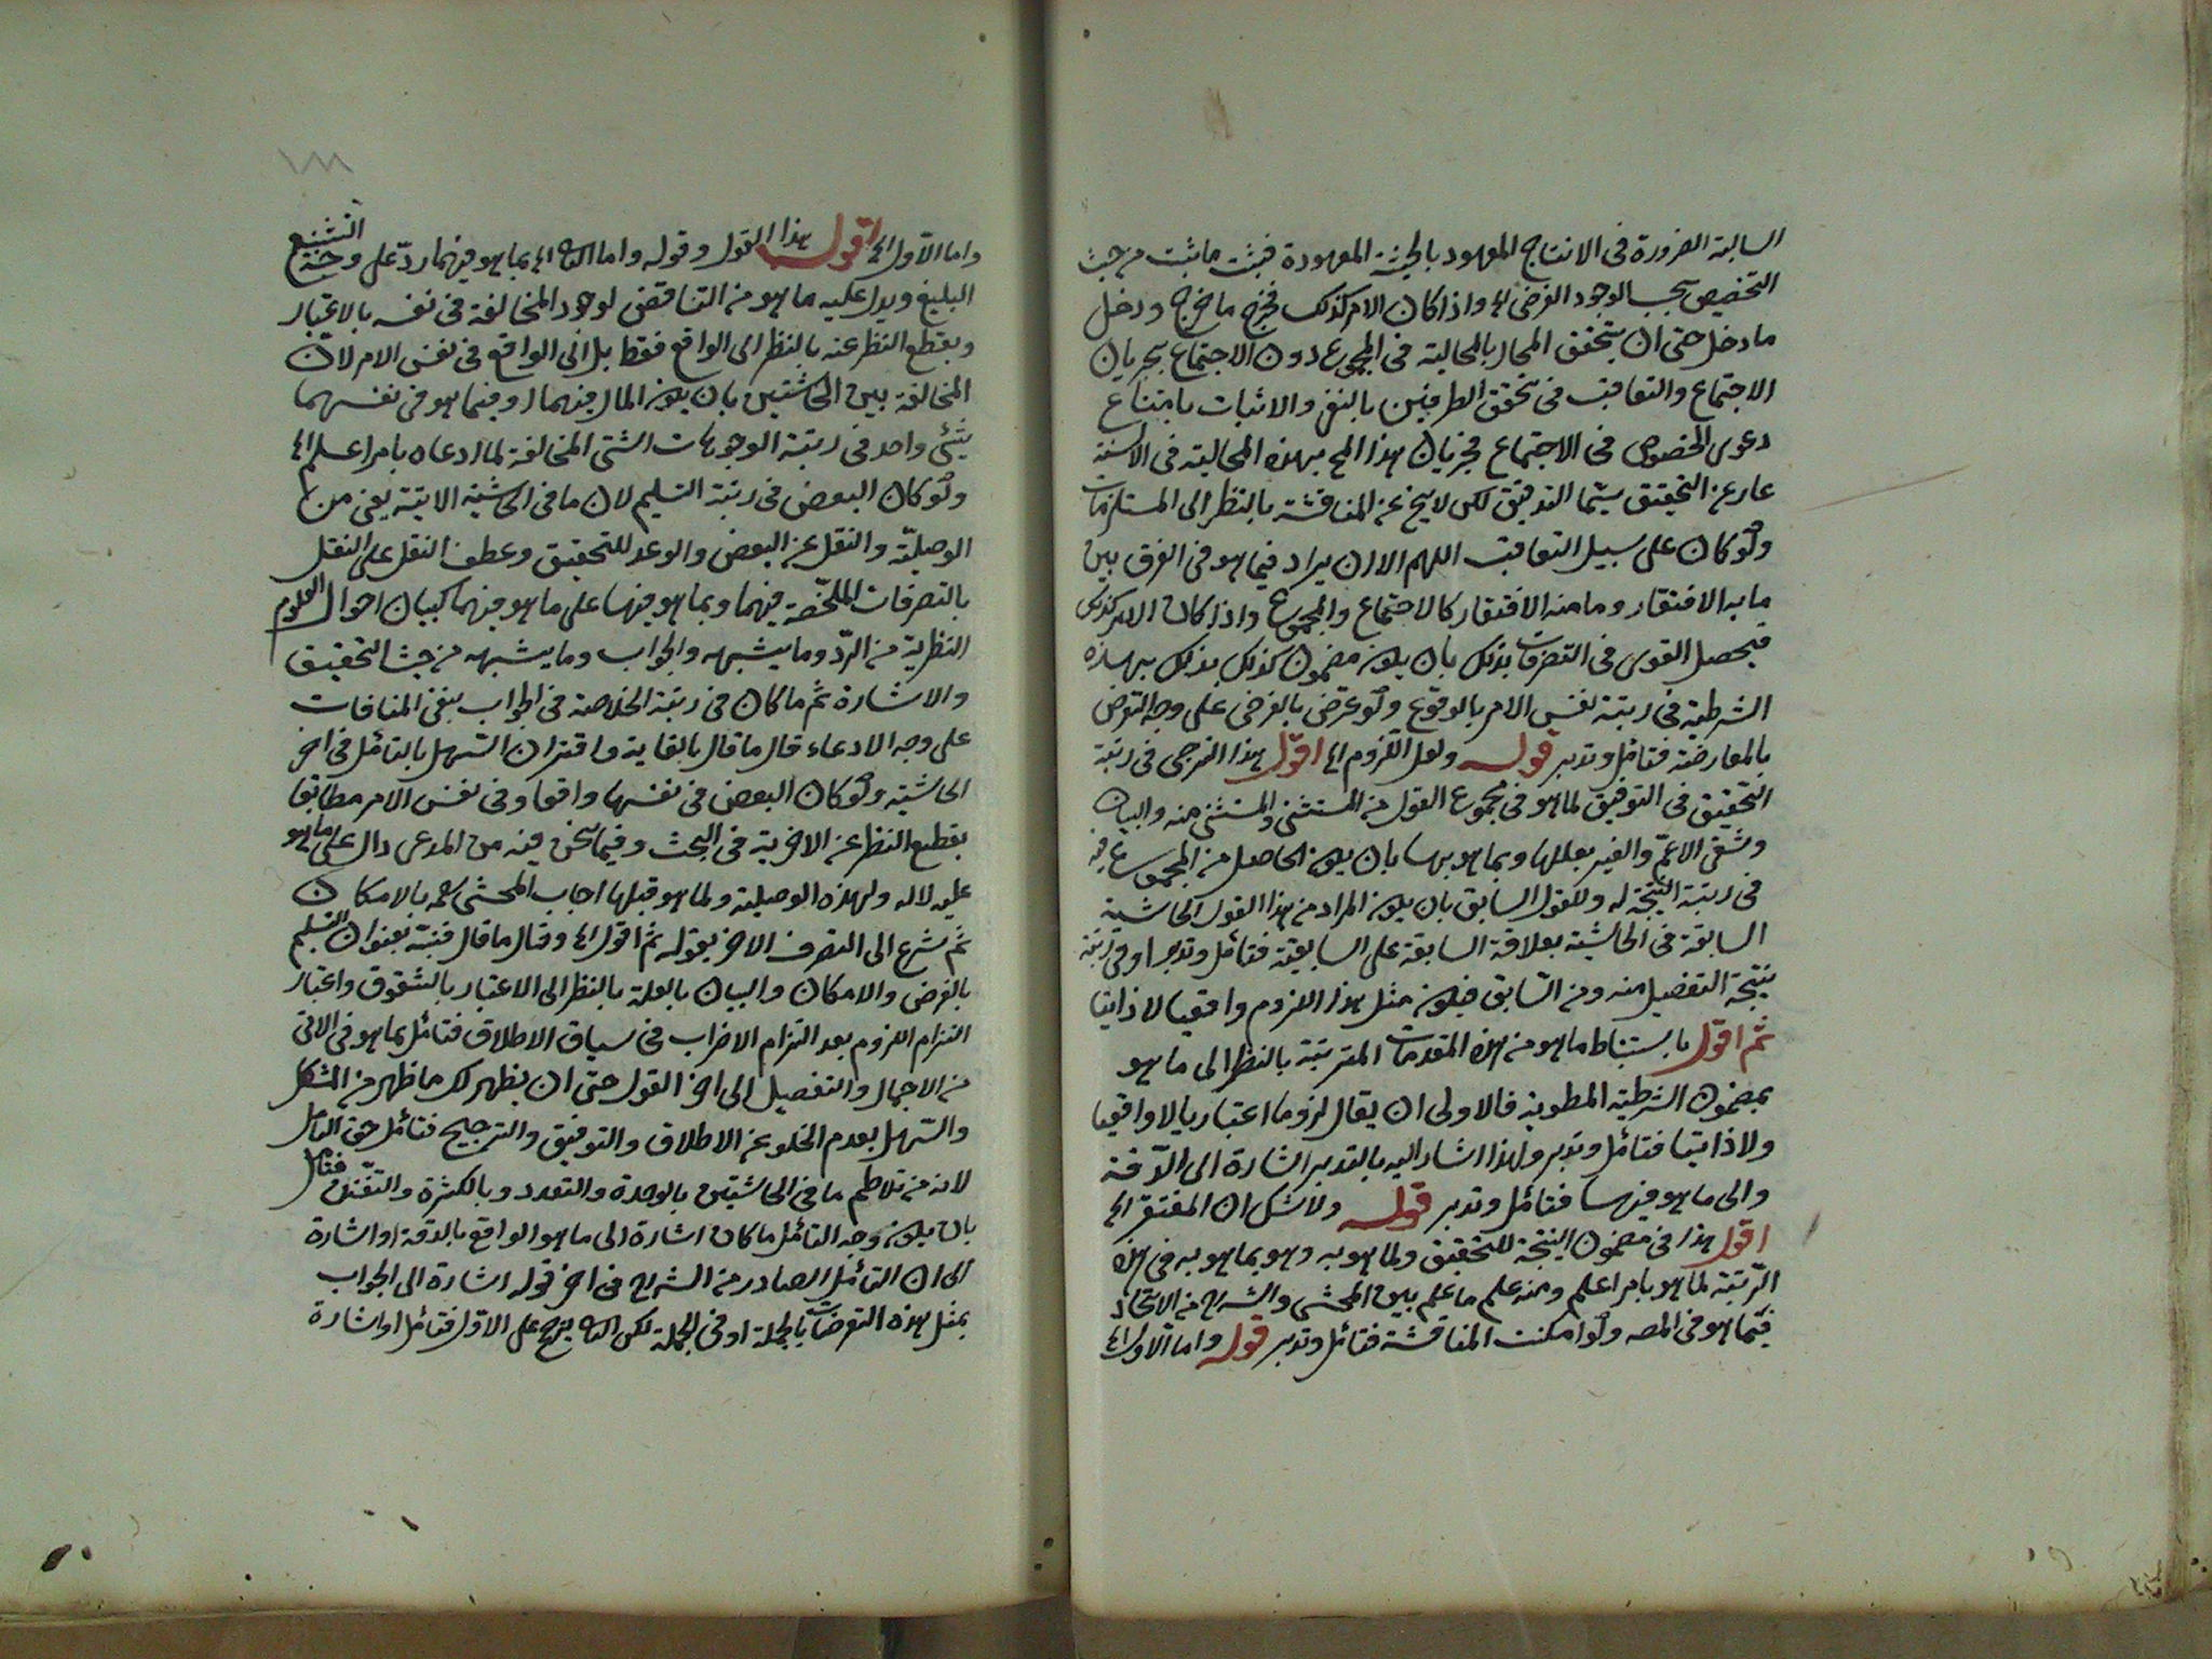 السالبة الضرورة فى الانتاج المعهود بالحيثية المعهودة فيثبت ما ثبت من حيث
التخصيص بحسب الوجود الفرضى الخ واذا كان الامر كذلك فخرج ما خرج ودخل
ما دخل حتى ان يتحقق المحال بالمحالية فى المجموع دون الاجتماع بجريان
الاجتماع والتعاقب فى تحقق الطرفين بالنفى والاثبات بامتناع
دعوى الخصوص فى الاجتماع فجريان هذا المح بهذه المحالية فى
عار عن التحقيق سيما التدقيق لكن لا يخ عن المناقشة بالنظر الى المستلزمات
ولو كان على سبيل التعاقب اللهم الا ان يراد فيما هو فى الفرق بين
ما به الافتقار وما منه الافتقار كالاجتماع والمجموع واذا كان الامر كذلك
فيحصل القوى فى التصرفات بذلك بان يكون مضمون كذلك بذلك بهذه
الشرطية فى رتبة نفس الامر بالوقوع ولو عرض بالفرض على وجه التعرض
بالمعارضة فتأمل وتدبر قوله ولعل اللزوم الخ اقول هذا الترجى فى رتبة
التحقيق فى التوفيق لما هو فى مجموع القول من المستثنى والمستثنى منه والبيان
وشقى الاعم والغير بعللها وبما هو بها بان يكون الحاصل من المجموع فيه
فى رتبة النتيجة له وللقول السابق بان يكون المراد من هذا القول الحاشية
السابقة فى الحاشية بعلاقة السابقة على السابقية فتأمل وتدبر او فى رتبة
نتيجة التفصيل منه ومن السابق فيكون مثل هذا اللزوم واقعيا لا ذاتيا
ثم اقول باستنباط ما هو من هذه المقدمات المترتبة بالنظر الى ما هو
بمضمون الشرطية المطوية فالاولى ان يقال لزوما اعتباريا لا واقعيا
ولا ذاتيا فتأمل وتدبر ولهذا اشار اليه بالتدبر اشارة الى الدقة
والى ما هو فيها فتأمل وتدبر قوله ولا شك ان المفتقر الخ
اقول هذا فى مضمون النتيجة للتحقيق ولما هو به وهو بما هو به فى هذه
الرتبة لما هو بامر اعلم ومنه علم ما علم بين المحشى والشرح من الاتحاد
فيما هو فى المصه ولو امكنت المناقشة فتأمل وتدبر قوله واما الاول الخ
واما الاول الخ اقول هذا القول وقوله واما الثانى الخ بما هو فيهما رد على وجه التشنيع
البليغ ويدل عليه ما هو من التناقض لوجود المخالفة فى نفسه بالاعتبار
وبقطع النظر عنه بالنظر الى الواقع فقط بل الى الواقع فى نفس الامر لان
المخالفة بين الحاشيتين بان يكون المال فيهما او فيما هو فى نفسهما
شئ واحد فى رتبة الوجوبات الشتى المخالفة لما ادعاه بامر اعلم الخ
ولو كان البعض فى رتبة التسليم لان ما فى الحاشية الاتية يعنى من
الوصلية والنقل عن البعض والوعد للتحقيق وعطف النقل على النقل
بالتصرفات الملخصة فيهما وبما هو فيها على ما هو فيهما كبيان احوال العلوم
النظرية من الرد وما يشبهه والجواب وما يشبهه من حيث التحقيق
والاشارة ثم ما كان فى رتبة الخلاصة فى الجواب بنفى المنافات
على وجه الادعاء قال ما قال بالغاية واقتران السهل بالتأمل فى اخر
الحاشية ولو كان البعض فى نفسها واقعا وفى نفس الامر مطابقا
بقطع النظر عن الاخرية فى البحث وفيما نحن فيه من المدعى دال على ما هو
عليه لاله ولهذه الوصلية ولما هو قبلها اجاب المحشى رحمه بالامكان
ثم شرع الى التصرف الاخر بقوله ثم اقول الخ وقال ما قال فنبه بعنوان التسليم
بالفرض والامكان والبيان بالعلة بالنظر الى الاعتبار بالشقوق واعتبار
التزام اللزوم بعد التزام الاضراب فى سياق الاطلاق فتأمل بما هو فى الاتى
من الاجمال والتفصيل الى اخر القول حتى ان يظهر لك ما ظهر من المشكل
والسهل بعدم الخلو عن الاطلاق والتوفيق والترجيح فتأمل حق التأمل
لانه من تلاطم ما فى الحاشيتين بالوحدة والتعدد وبالكثرة والتفنن فتأمل
بان يكون وجه التأمل ما كان اشارة الى ما هو الواقع بالدقة او اشارة
الى ان التأمل الصادر من الشرح فى اخر قوله اشارة الى الجواب
بمثل هذه التعرضات بالجملة او فى الجملة لكن الثانى يرجح على الاول فتأمل او اشارة